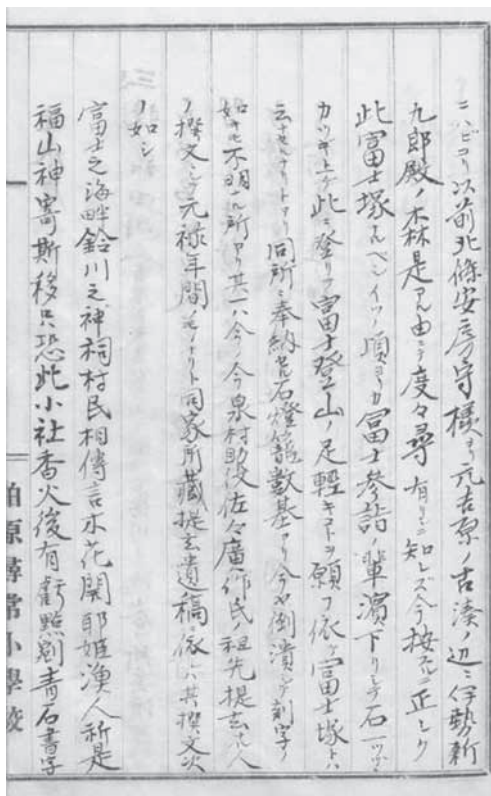 ニハビコリ以前北條安房守様ヨリ元吉原ノ古湊ノ辺ニ伊勢新
九郎殿ノ森是アル由ニテ度々尋有リシニ知レズ今按スルニ正シク
此富士塚ナルベシイツノ頃ヨリカ富士参詣ノ輩濱下リシテ石一ツヅヽ
カツギ上ゲ此ニ登リテ富士登山ノ足軽キコトヲ願フ依テ富士塚トハ
云ナセルナリトアリ同所ニ奉納ノ石燈籠数基アリ今ヤ倒潰シテ刻字ノ
如キモ不明ノ所アリ其一ハ今ノ今泉村助役佐々廣作氏ノ祖先提玄ナル人
ノ撰文ニシテ元禄年間ノモノナリト同家所蔵提玄遺稿ニ依レバ其撰文次
ノ如シ
富士之海畔鈴川之神祠村民相傳言木花開耶姫漁人祈是
福山神寄斯移只恐此小社香火後有虧點剟青石書字
柏原尋常小學校